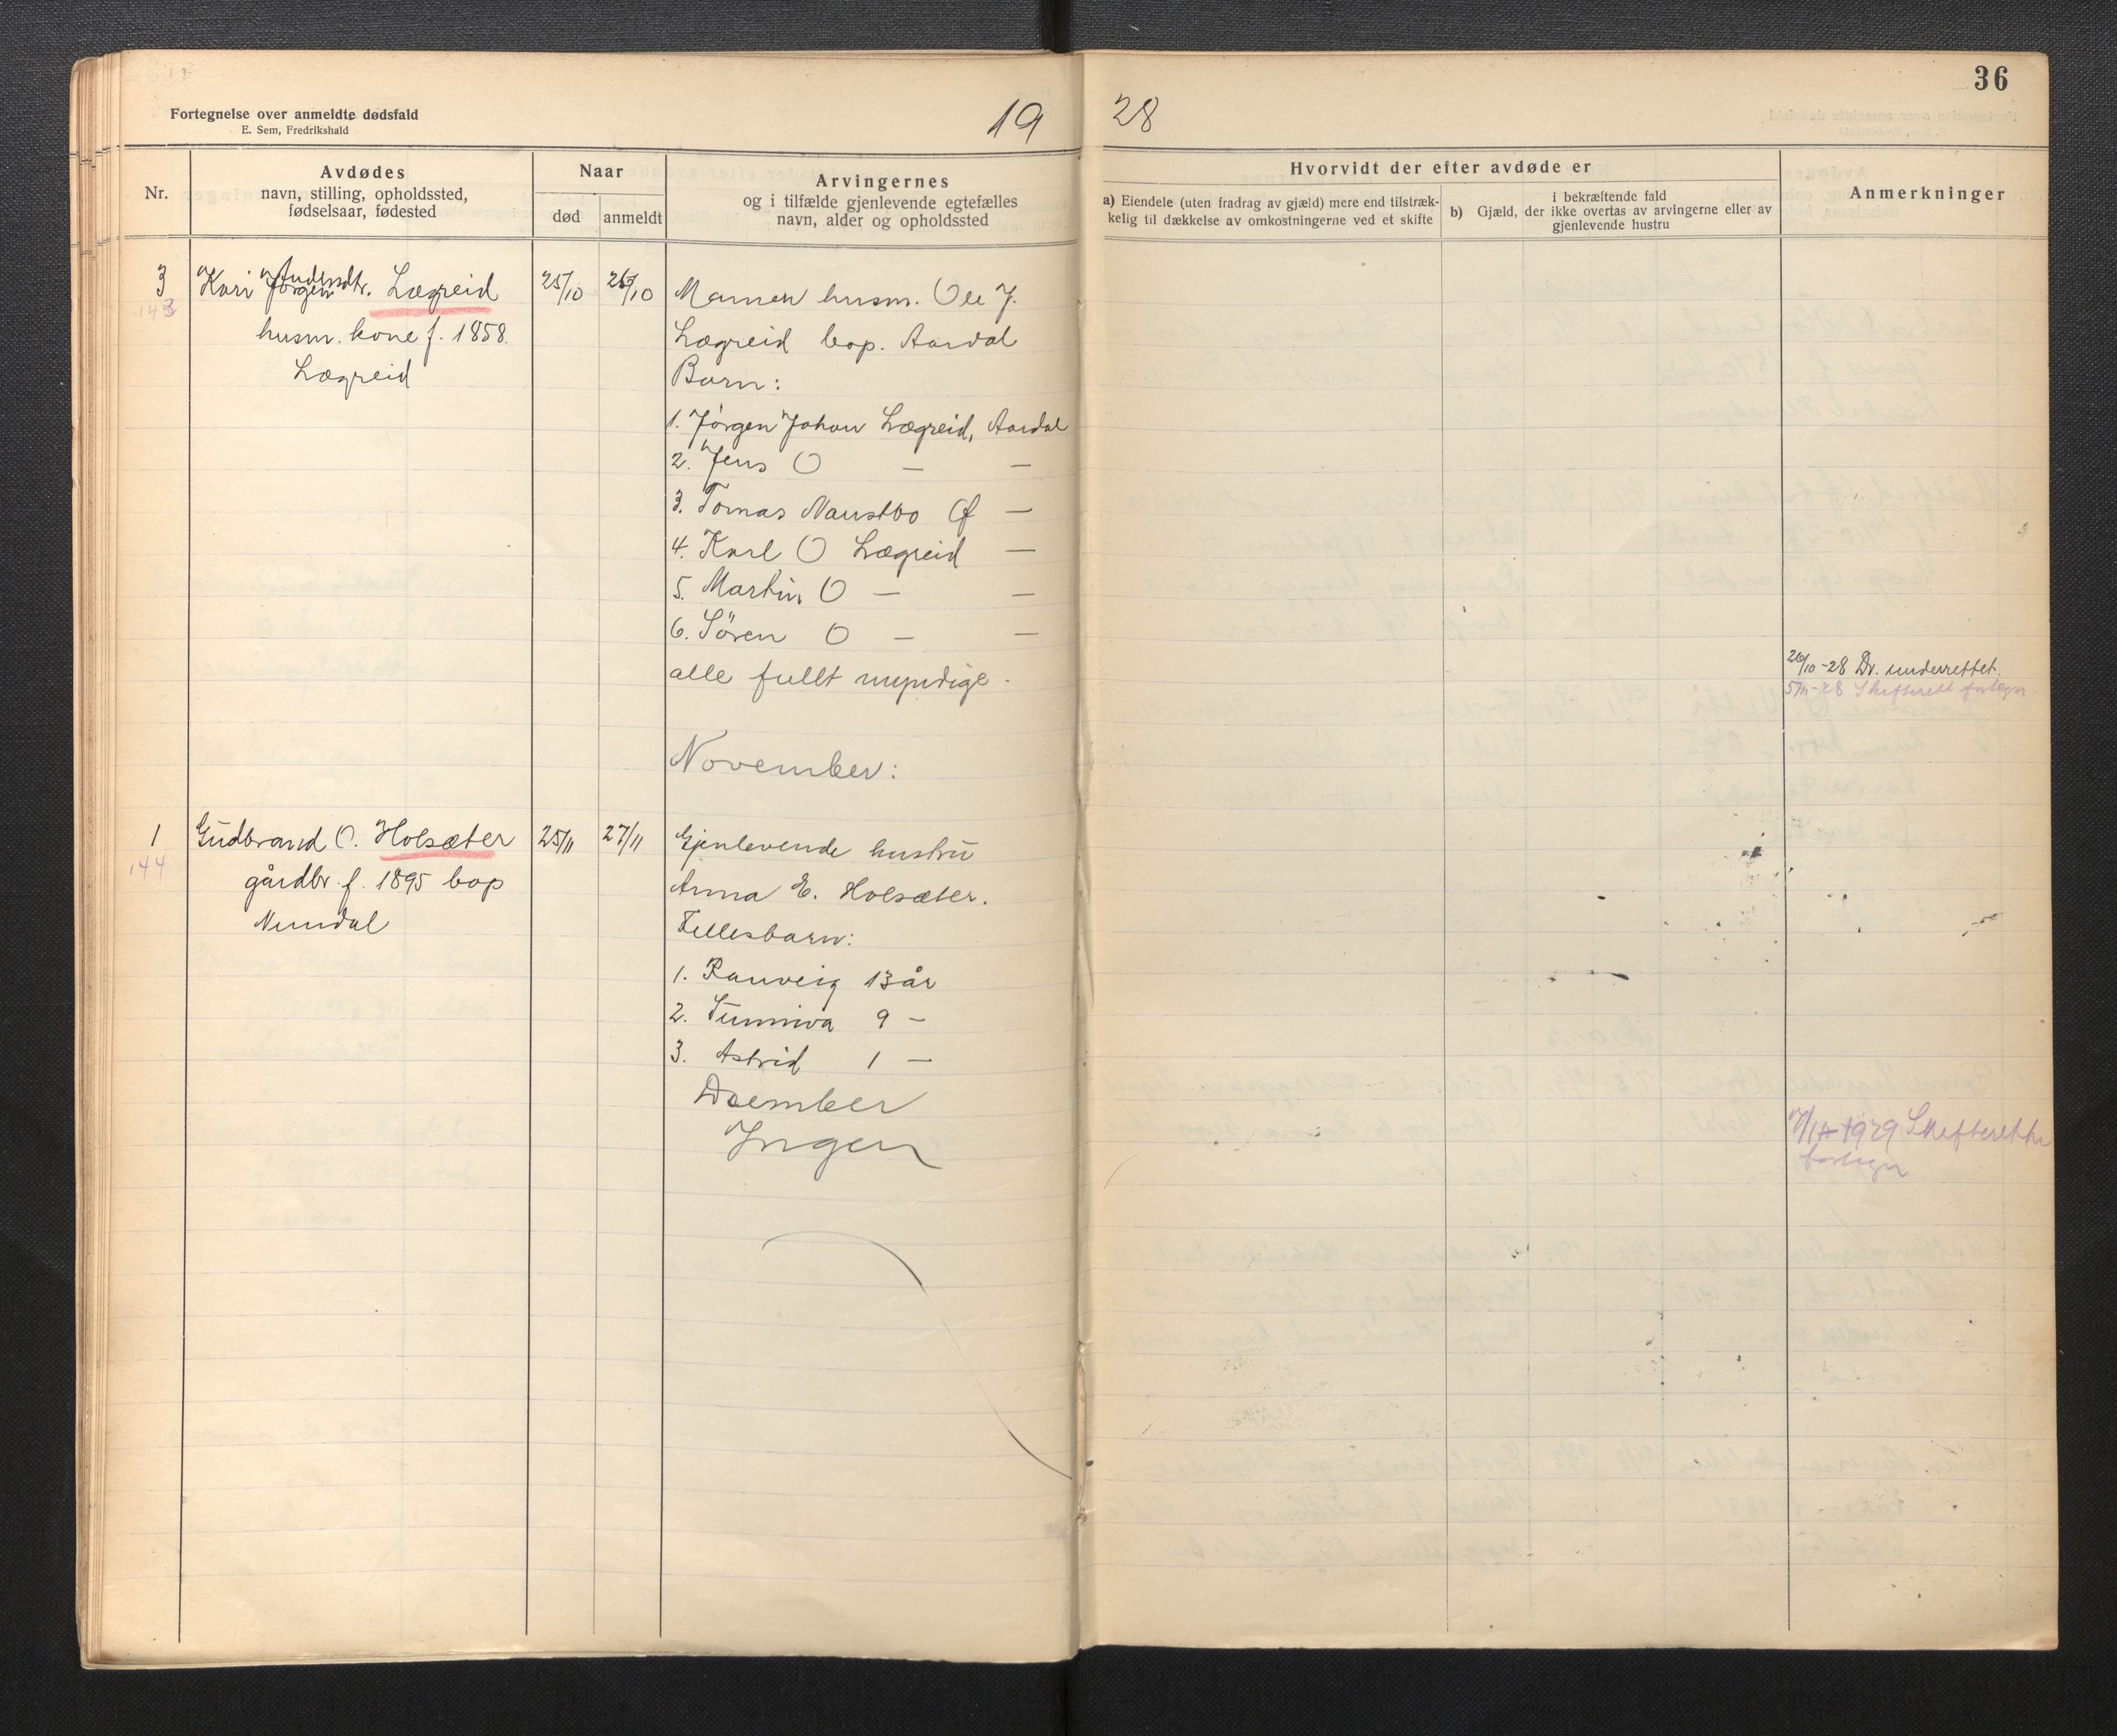 36
Fortegnelse over anmeldte dødsfald
E. Sem, Fredrikshald
19 28
Nr.
Avdødes
navn, stilling, opholdssted,
fødselsaar, fødested
Naar
død
anmeldt
Arvingernes
og i tilfælde gjenlevende egtefælles
navn, alder og opholdssted
Hvorvidt der efter avdøde er
a) Eiendele (uten fradrag av gjæld) mere end tilstræk-
kelig til dækkelse av omkostningerne ved et skifte
b) Gjæld, der
i bekræftende fald
ikke overtas av arvingerne eller av
gjenlevende hustru
Anmerkninger
3
143
Kari Jørgen Andersdtr. Lægreid
husm. kone f. 1858.
Lægreid
25/10
26/10
Mannen husm. Ole J.
Lægreid bop. Aardal
Barn:
1. Jørgen Johan Lægreid, Aardal
2. Jens O — —
3. Tomas Naustbo Of —
4. Karl O Lægreid —
5. Martin O — —
6. Søren O — —
alle fullt myndige.
26/10-28 Dv. underrettet.
5/11-28 Skifterett fortegn
November:
1
144
Gudbrand O. Holsæter
gårdbr. f. 1895 bop
Nundal
25/11
27/11
Gjenlevende hustru
Anna E. Holsæter.
Fellesbarn:
1. Ranveig 13 år
2. Sunniva 9 —
3. Astrid 1 —
Desember
Ingen
1929 Skifterett
fortegn